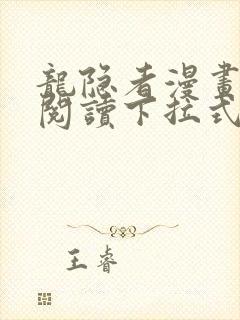 龍隐者漫畫
閱讀下拉式
王睿